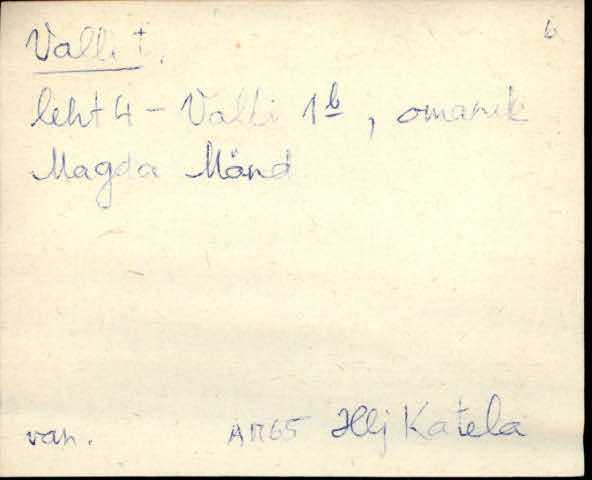 b
Valli t.
leht 4 - Valli 1b, omanik
Magda Mänd
van. Hlj Katela